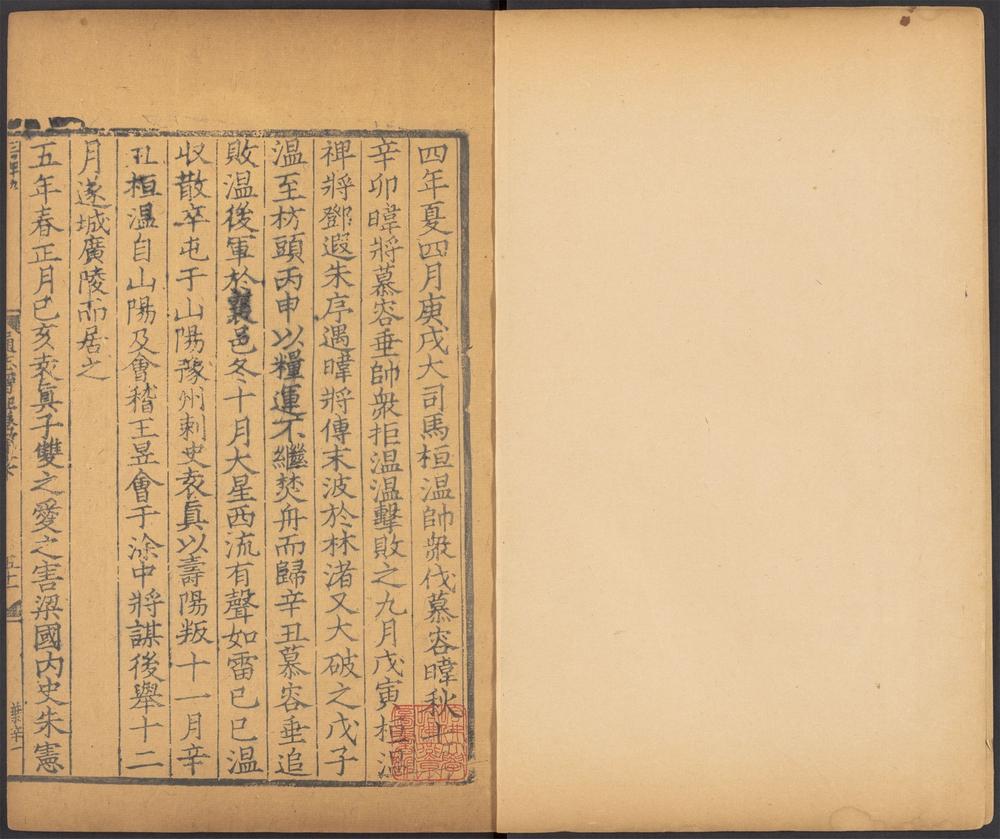 四年夏四月庚戌大司馬桓温帥衆伐慕容暐秋七
辛卯暐將慕容垂帥衆拒温温擊敗之九月戊寅桓温
裨將鄧遐朱序遇暐將傅末波於林渚又大破之戊子
温至枋頭丙申以糧運不繼焚舟而歸辛丑慕容垂追
敗温後軍於襄邑冬十月大星西流有聲如雷己巳温
収散卒屯于山陽豫州刺史袁眞以壽陽叛十一月辛
丑桓温自山陽及會稽王昱會于涂中將謀後舉十二
月遂城廣陵而居之
五年春正月己亥袁眞子雙之愛之害梁國内史朱憲
五十一
葉辛